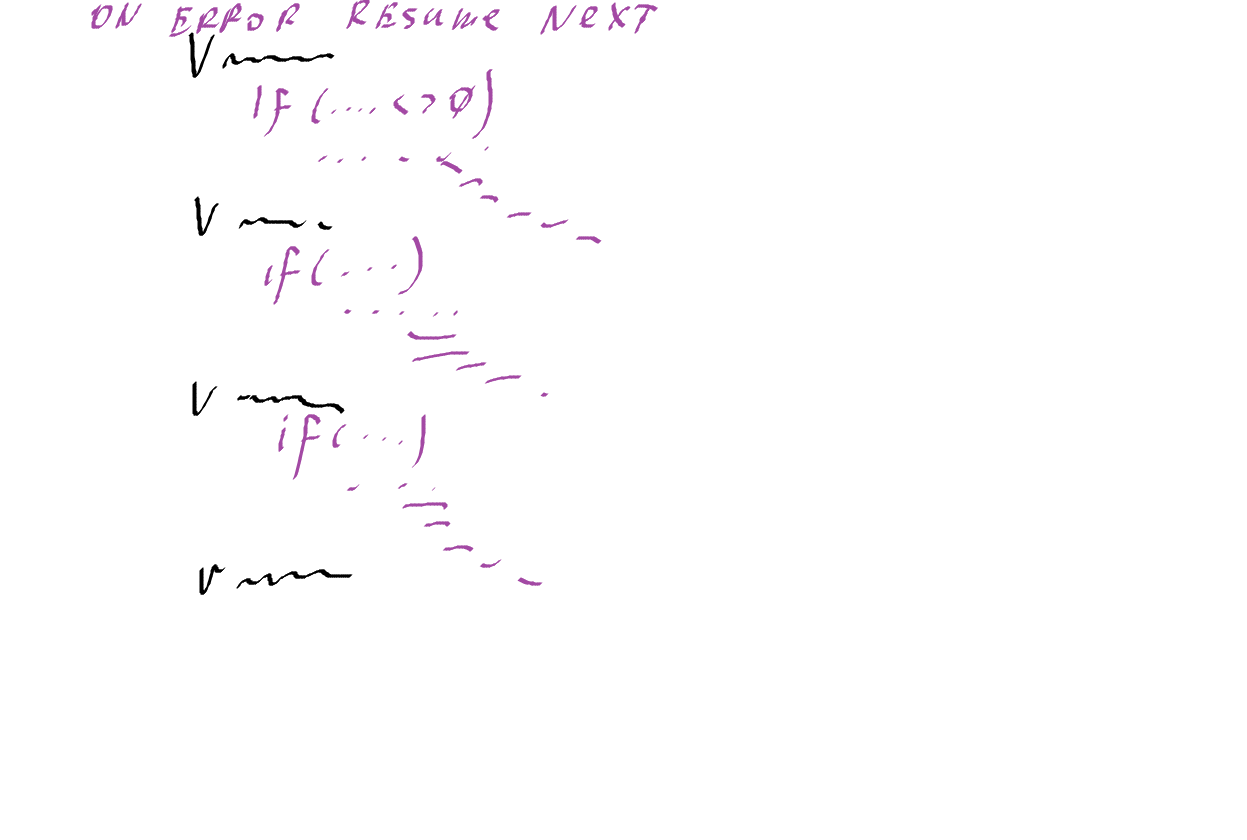 ON ERROR RESUME NEXT
V
If (.... <> 0)
V
if (...)
V
if (...)
V